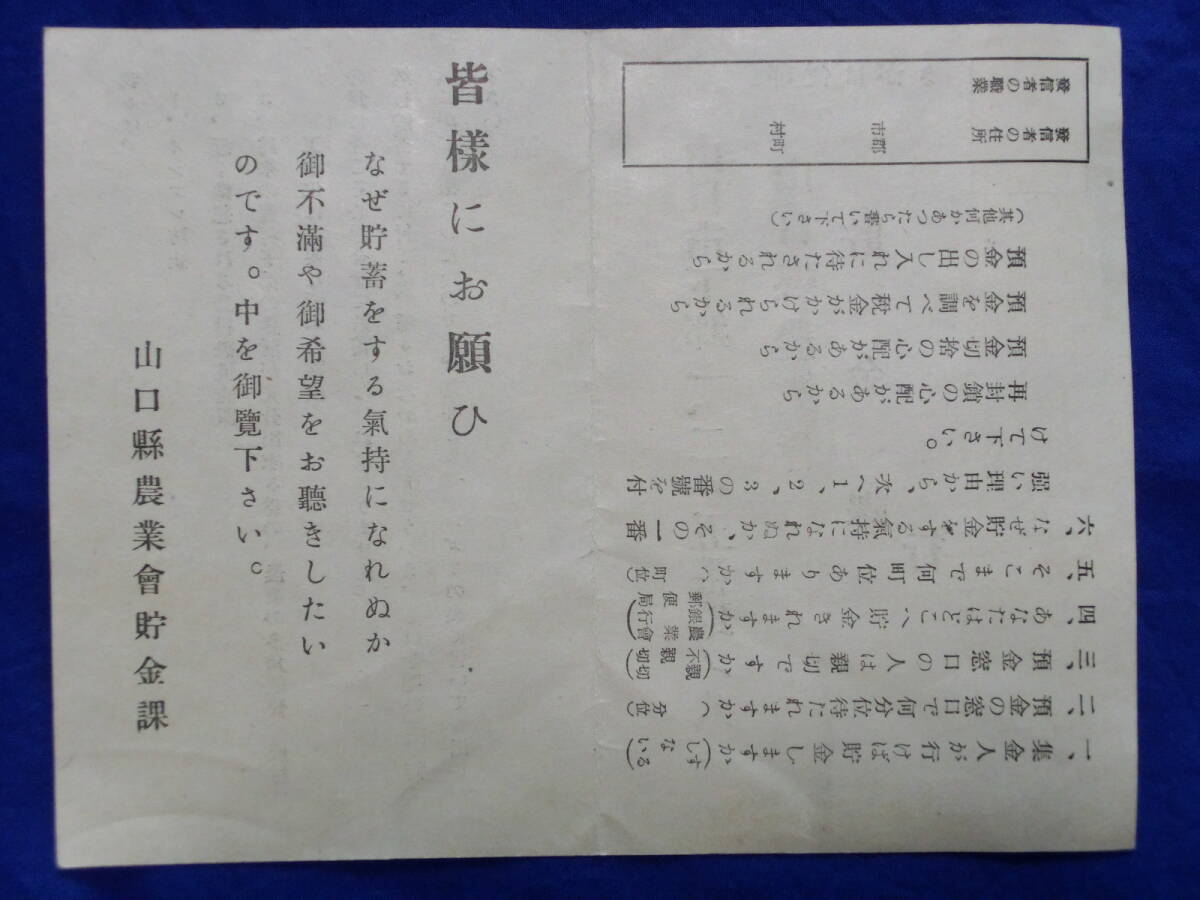 皆樣にお願ひ
なぜ貯蓄をする氣持になれぬか
御不滿や御希望をお聽きしたい
のです。中を御覽下さい。
山口縣農業會貯金課
一、集金人が行けば貯金しますか(する しない)
二、預金の窓口で何分位待たれますか( 分位)
三、預金窓口の人は親切ですか(親切 不親切)
四、あなたはどこへ貯金されますか(農業會 銀行 郵便局)
五、そこまで何町位ありますか( 町位)
六、なぜ貯金をする氣持になれぬか、その一番
强い理由から、次へ1、2、3の番號を付
けて下さい。
再封鎖の心配があるから
預金切捨の心配があるから
預金を調べて稅金がかけられるから
預金の出し入れに待たされるから
(其他何かあつたら書いて下さい)
發信者の住所 市郡 村町
發信者の職業